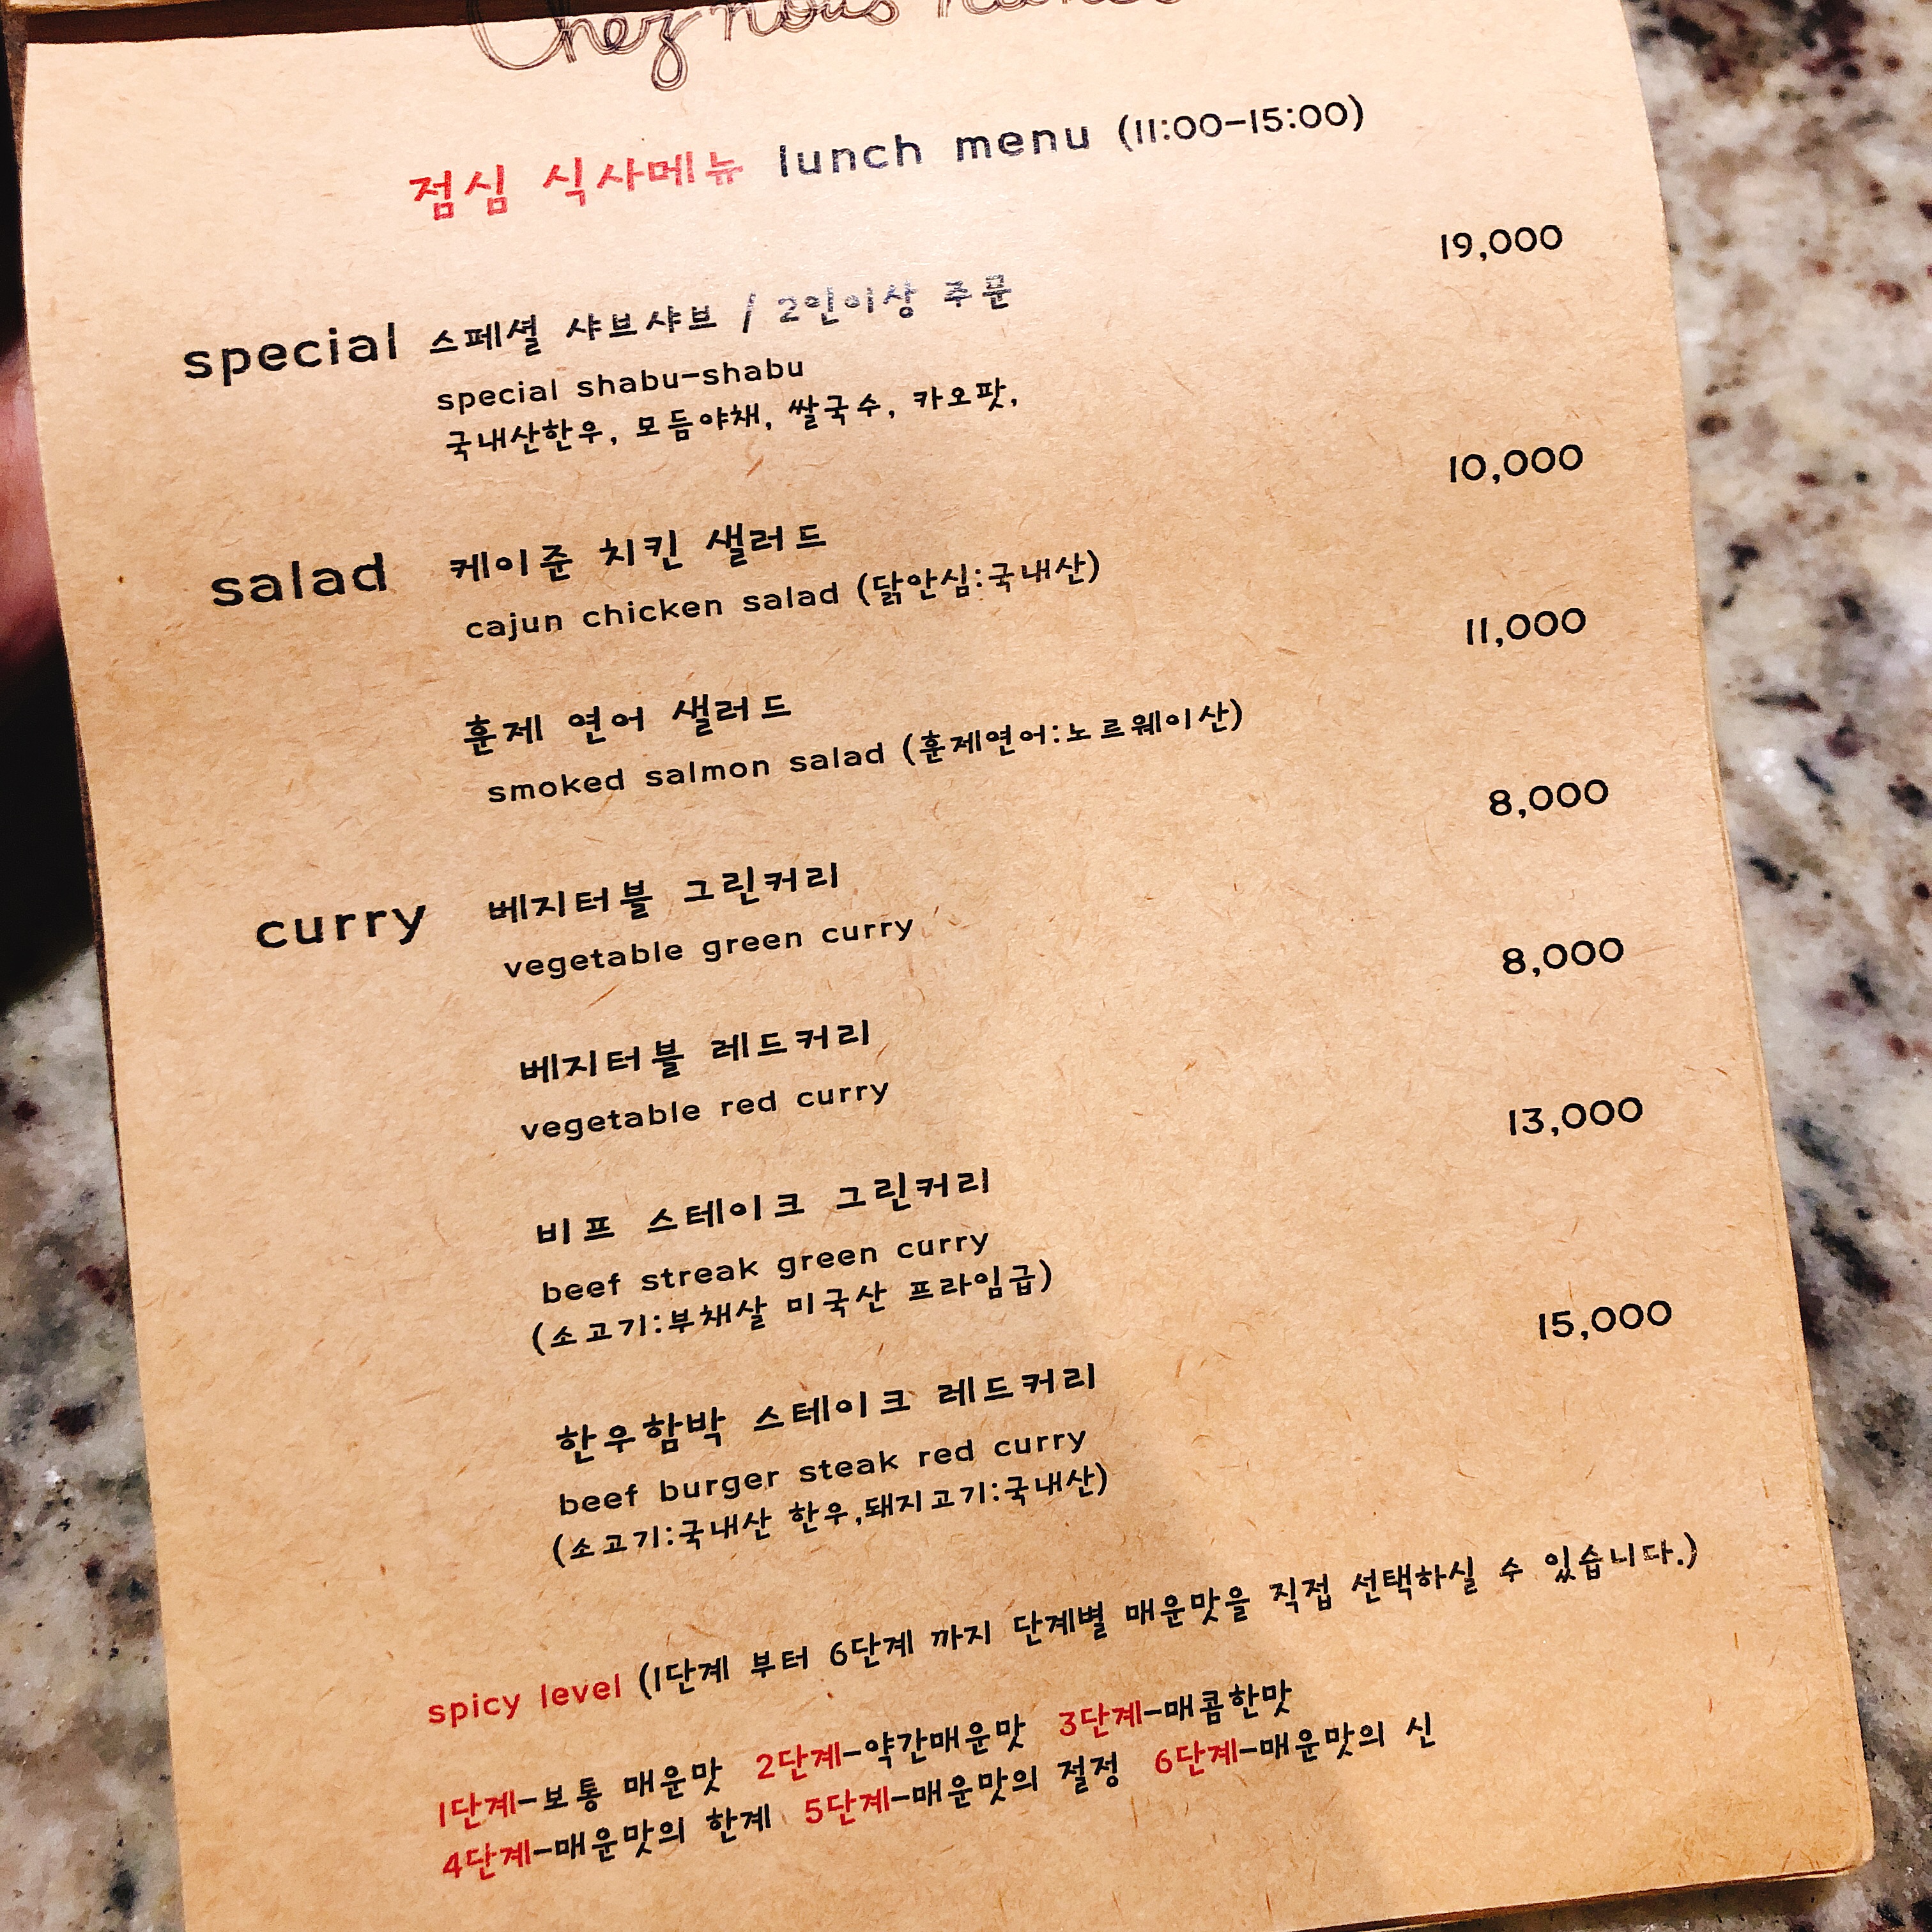 Chez nous
점심 식사메뉴 lunch menu (11:00-15:00)
19,000
special 스페셜 샤브샤브 / 2인이상 주문
special shabu-shabu
국내산한우, 모듬야채, 쌀국수, 카오팟,
10,000
salad 케이준 치킨 샐러드
cajun chicken salad (닭안심:국내산)
11,000
훈제 연어 샐러드
smoked salmon salad (훈제연어:노르웨이산)
8,000
curry 베지터블 그린커리
vegetable green curry
8,000
베지터블 레드커리
vegetable red curry
13,000
비프 스테이크 그린커리
beef streak green curry
(소고기:부채살 미국산 프라임급)
15,000
한우함박 스테이크 레드커리
beef burger steak red curry
(소고기:국내산 한우,돼지고기:국내산)
spicy level (1단계 부터 6단계 까지 단계별 매운맛을 직접 선택하실 수 있습니다.)
1단계-보통 매운맛 2단계-약간매운맛 3단계-매콤한맛
4단계-매운맛의 한계 5단계-매운맛의 절정 6단계-매운맛의 신